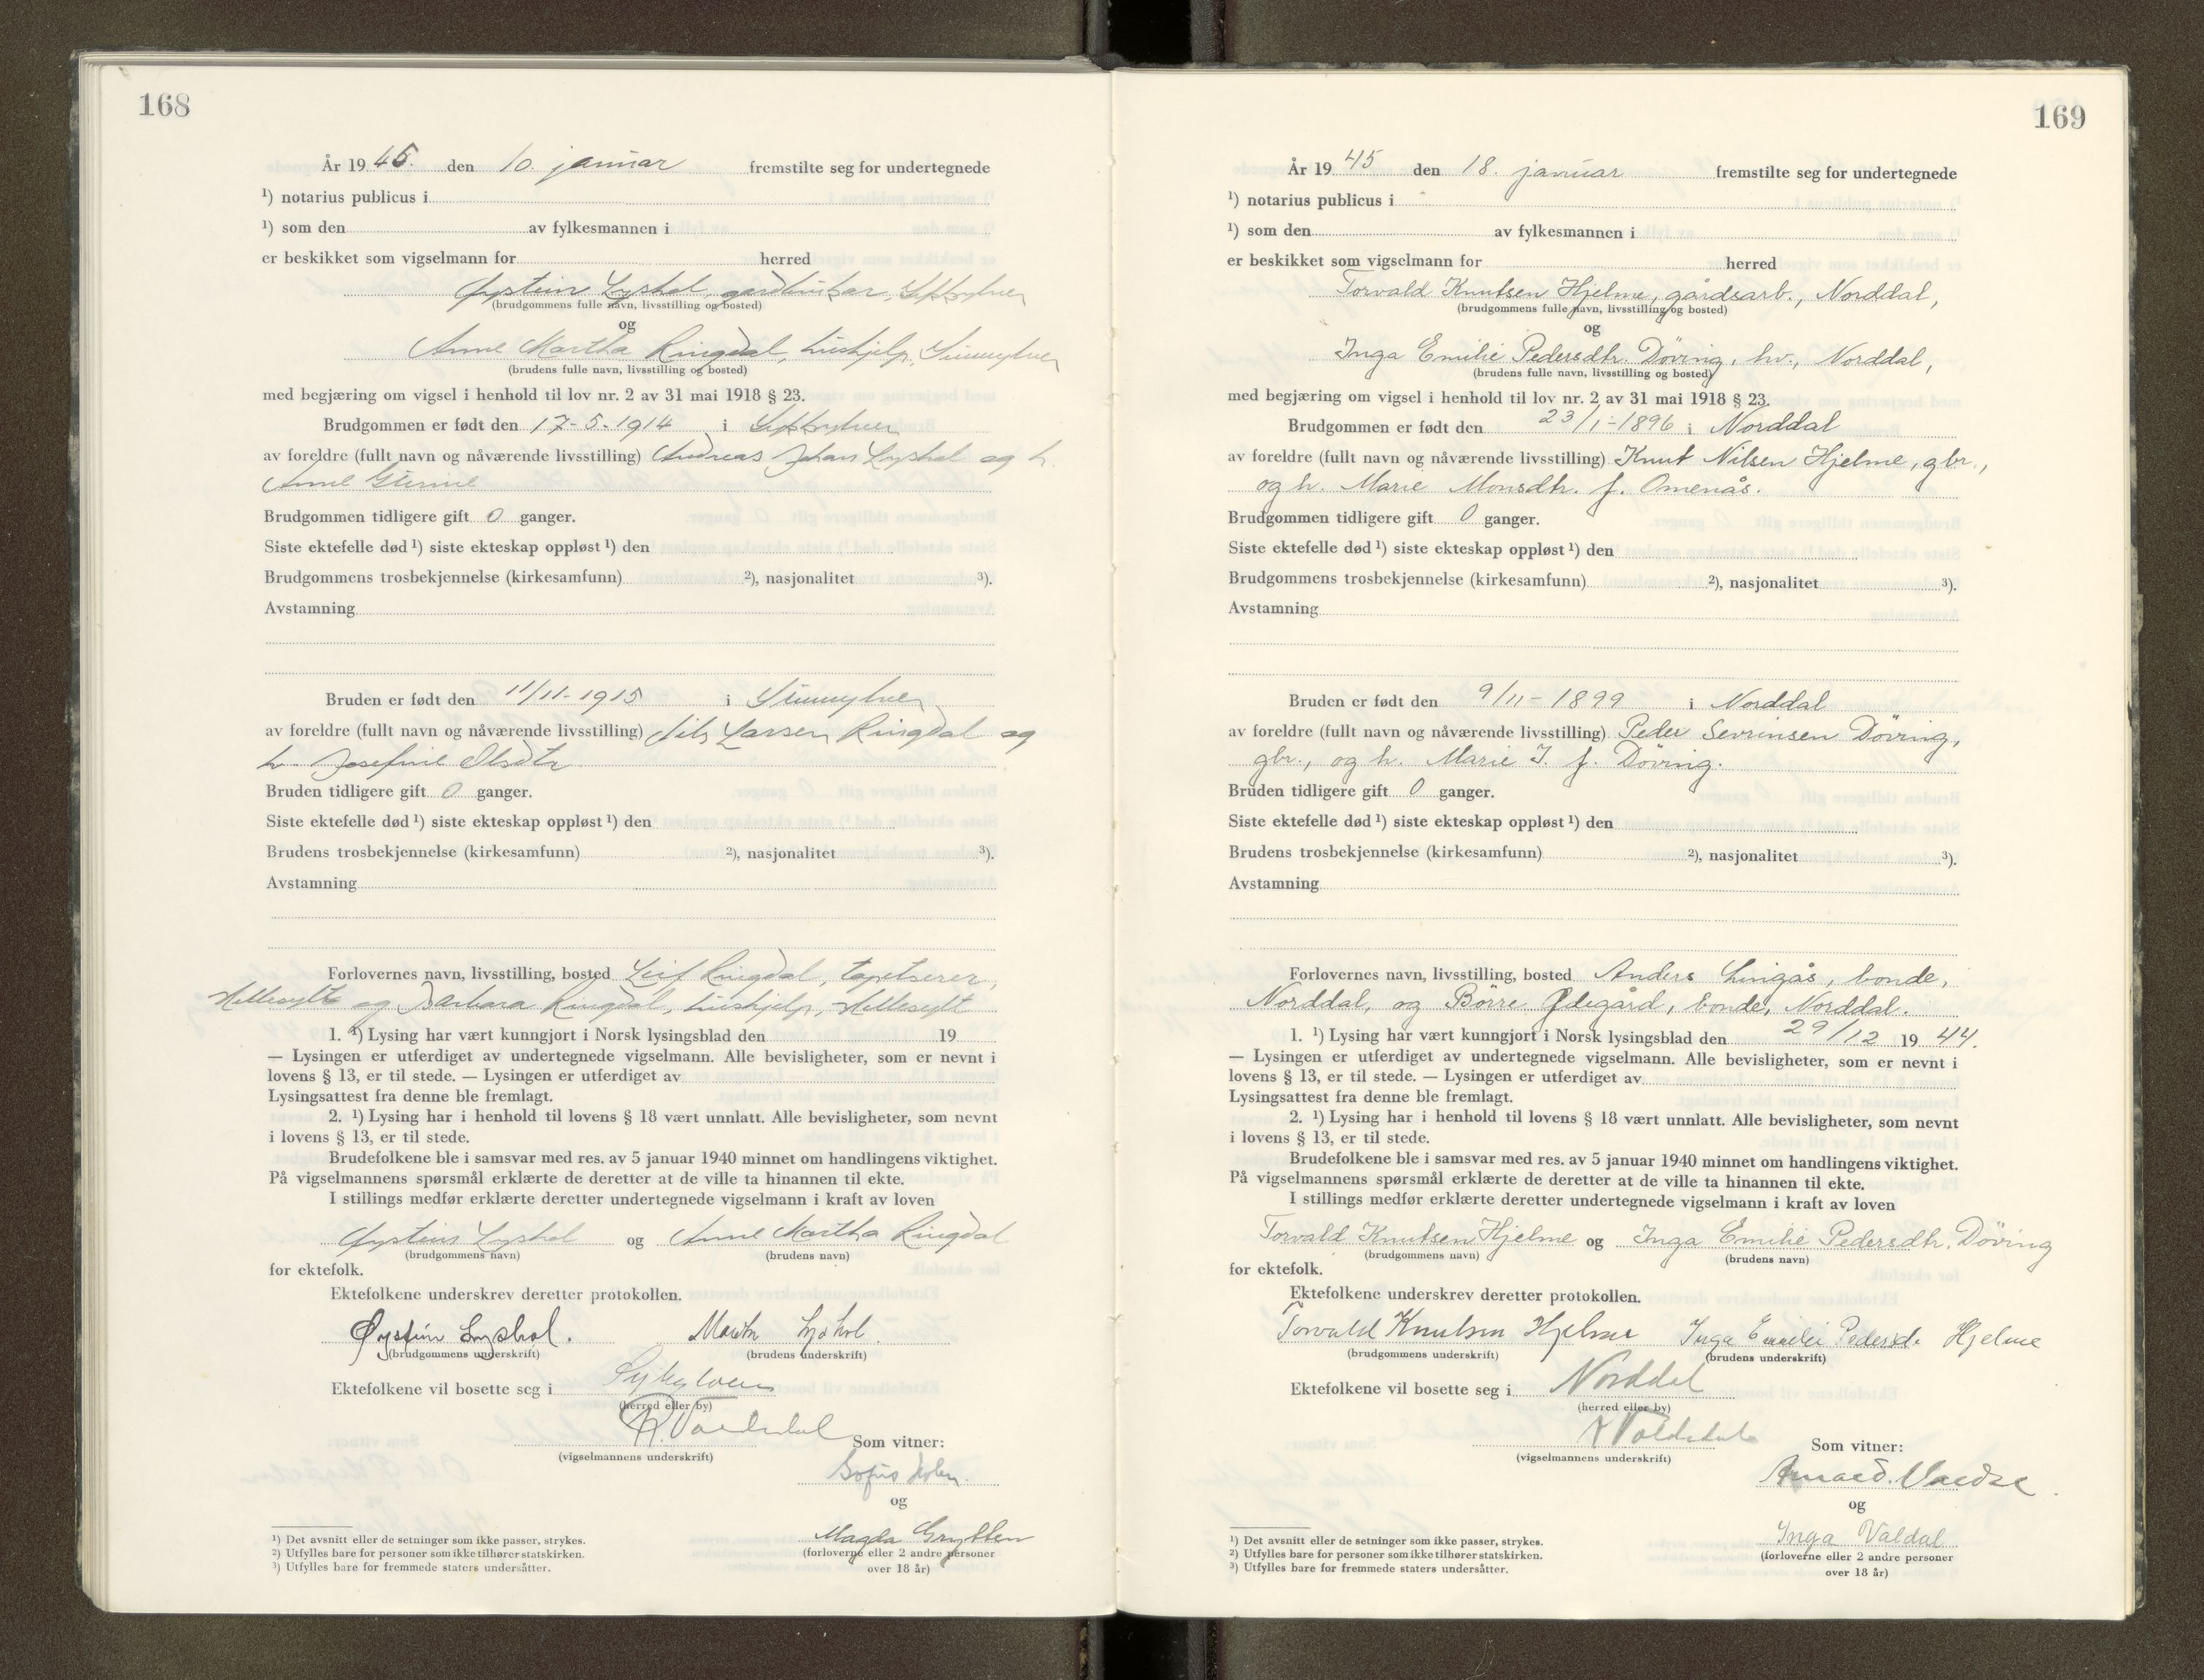 168
År 19 45. den 10. januar fremstilte seg for undertegnede
¹) notarius publicus i
¹) som den av fylkesmannen i
er beskikket som vigselmann for herred
Øystein Lyshol, gardbrukar,
(brudgommens fulle navn, livsstilling og bosted)
og
Anne Martha Ringdal, hushjelp, Sunnylven
(brudens fulle navn, livsstilling og bosted)
med begjæring om vigsel i henhold til lov nr. 2 av 31 mai 1918 § 23.
Brudgommen er født den 17-5-1914 i
av foreldre (fullt navn og nåværende livsstilling) Andreas Johan Lyshol og h.
Anne
Brudgommen tidligere gift 0 ganger.
Siste ektefelle død ¹) siste ekteskap oppløst ¹) den
Brudgommens trosbekjennelse (kirkesamfunn) ²), nasjonalitet ³).
Avstamning
Bruden er født den 11/11-1915 i Sunnylven
av foreldre (fullt navn og nåværende livsstilling) Nils Larsen Ringdal og
h. Josefine Olsdtr
Bruden tidligere gift 0 ganger.
Siste ektefelle død ¹) siste ekteskap oppløst ¹) den
Brudens trosbekjennelse (kirkesamfunn) ²), nasjonalitet ³).
Avstamning
Forlovernes navn, livsstilling, bosted Leif Ringdal, tapetserer,
Hellesylt og Barbara Ringdal, hushjelp, Hellesylt
1. ¹) Lysing har vært kunngjort i Norsk lysingsblad den 19
— Lysingen er utferdiget av undertegnede vigselmann. Alle bevisligheter, som er nevnt i
lovens § 13, er til stede. — Lysingen er utferdiget av
Lysingsattest fra denne ble fremlagt.
2. ¹) Lysing har i henhold til lovens § 18 vært unnlatt. Alle bevisligheter, som nevnt
i lovens § 13, er til stede.
Brudefolkene ble i samsvar med res. av 5 januar 1940 minnet om handlingens viktighet.
På vigselmannens spørsmål erklærte de deretter at de ville ta hinannen til ekte.
I stillings medfør erklærte deretter undertegnede vigselmann i kraft av loven
Øystein Lyshol og Anne Martha Ringdal
(brudgommens navn) (brudens navn)
for ektefolk.
Ektefolkene underskrev deretter protokollen.
Øystein Lyshol. Martha Lyshol.
(brudgommens underskrift) (brudens underskrift)
Ektefolkene vil bosette seg i Sykylven
(herred eller by)
R. Valdal
(vigselmannens underskrift) Som vitner:
Sofus Holen.
og
Magda Grytten
(forloverne eller 2 andre personer
over 18 år)
¹) Det avsnitt eller de setninger som ikke passer, strykes.
²) Utfylles bare for personer som ikke tilhører statskirken.
³) Utfylles bare for fremmede staters undersåtter.
169
År 19 45 den 18. januar fremstilte seg for undertegnede
¹) notarius publicus i
¹) som den av fylkesmannen i
er beskikket som vigselmann for herred
Torvald Knutsen Hjelme, gårdsarb., Norddal,
(brudgommens fulle navn, livsstilling og bosted)
og
Inga Emilie Pedersdtr. Döving, hv., Norddal,
(brudens fulle navn, livsstilling og bosted)
med begjæring om vigsel i henhold til lov nr. 2 av 31 mai 1918 § 23.
Brudgommen er født den 23/1-1896 i Norddal
av foreldre (fullt navn og nåværende livsstilling) Knut Nilsen Hjelme, gbr.,
og h. Marie Monsdtr. f. Omenås.
Brudgommen tidligere gift 0 ganger.
Siste ektefelle død ¹) siste ekteskap oppløst ¹) den
Brudgommens trosbekjennelse (kirkesamfunn) ²), nasjonalitet ³).
Avstamning
Bruden er født den 9/11-1899 i Norddal
av foreldre (fullt navn og nåværende livsstilling) Peder Sevrinsen Döving,
gbr., og h. Marie I. f. Döving.
Bruden tidligere gift 0 ganger.
Siste ektefelle død ¹) siste ekteskap oppløst ¹) den
Brudens trosbekjennelse (kirkesamfunn) ²), nasjonalitet ³).
Avstamning
Forlovernes navn, livsstilling, bosted Anders Lingås, bonde,
Norddal, og Börre Ødegård, bonde, Norddal.
1. ¹) Lysing har vært kunngjort i Norsk lysingsblad den 29/12 19 44.
— Lysingen er utferdiget av undertegnede vigselmann. Alle bevisligheter, som er nevnt i
lovens § 13, er til stede. — Lysingen er utferdiget av
Lysingsattest fra denne ble fremlagt.
2. ¹) Lysing har i henhold til lovens § 18 vært unnlatt. Alle bevisligheter, som nevnt
i lovens § 13, er til stede.
Brudefolkene ble i samsvar med res. av 5 januar 1940 minnet om handlingens viktighet.
På vigselmannens spørsmål erklærte de deretter at de ville ta hinannen til ekte.
I stillings medfør erklærte deretter undertegnede vigselmann i kraft av loven
Torvald Knutsen Hjelme og Inga Emilie Pedersdtr. Döving
(brudgommens navn) (brudens navn)
for ektefolk.
Ektefolkene underskrev deretter protokollen.
Torvald Knutsen Hjelme Inga Emilie Pedersd. Hjelme
(brudgommens underskrift) (brudens underskrift)
Ektefolkene vil bosette seg i Norddal
(herred eller by)
(vigselmannens underskrift) Som vitner:
og
Inga Valdal
(forloverne eller 2 andre personer
over 18 år)
¹) Det avsnitt eller de setninger som ikke passer, strykes.
²) Utfylles bare for personer som ikke tilhører statskirken.
³) Utfylles bare for fremmede staters undersåtter.